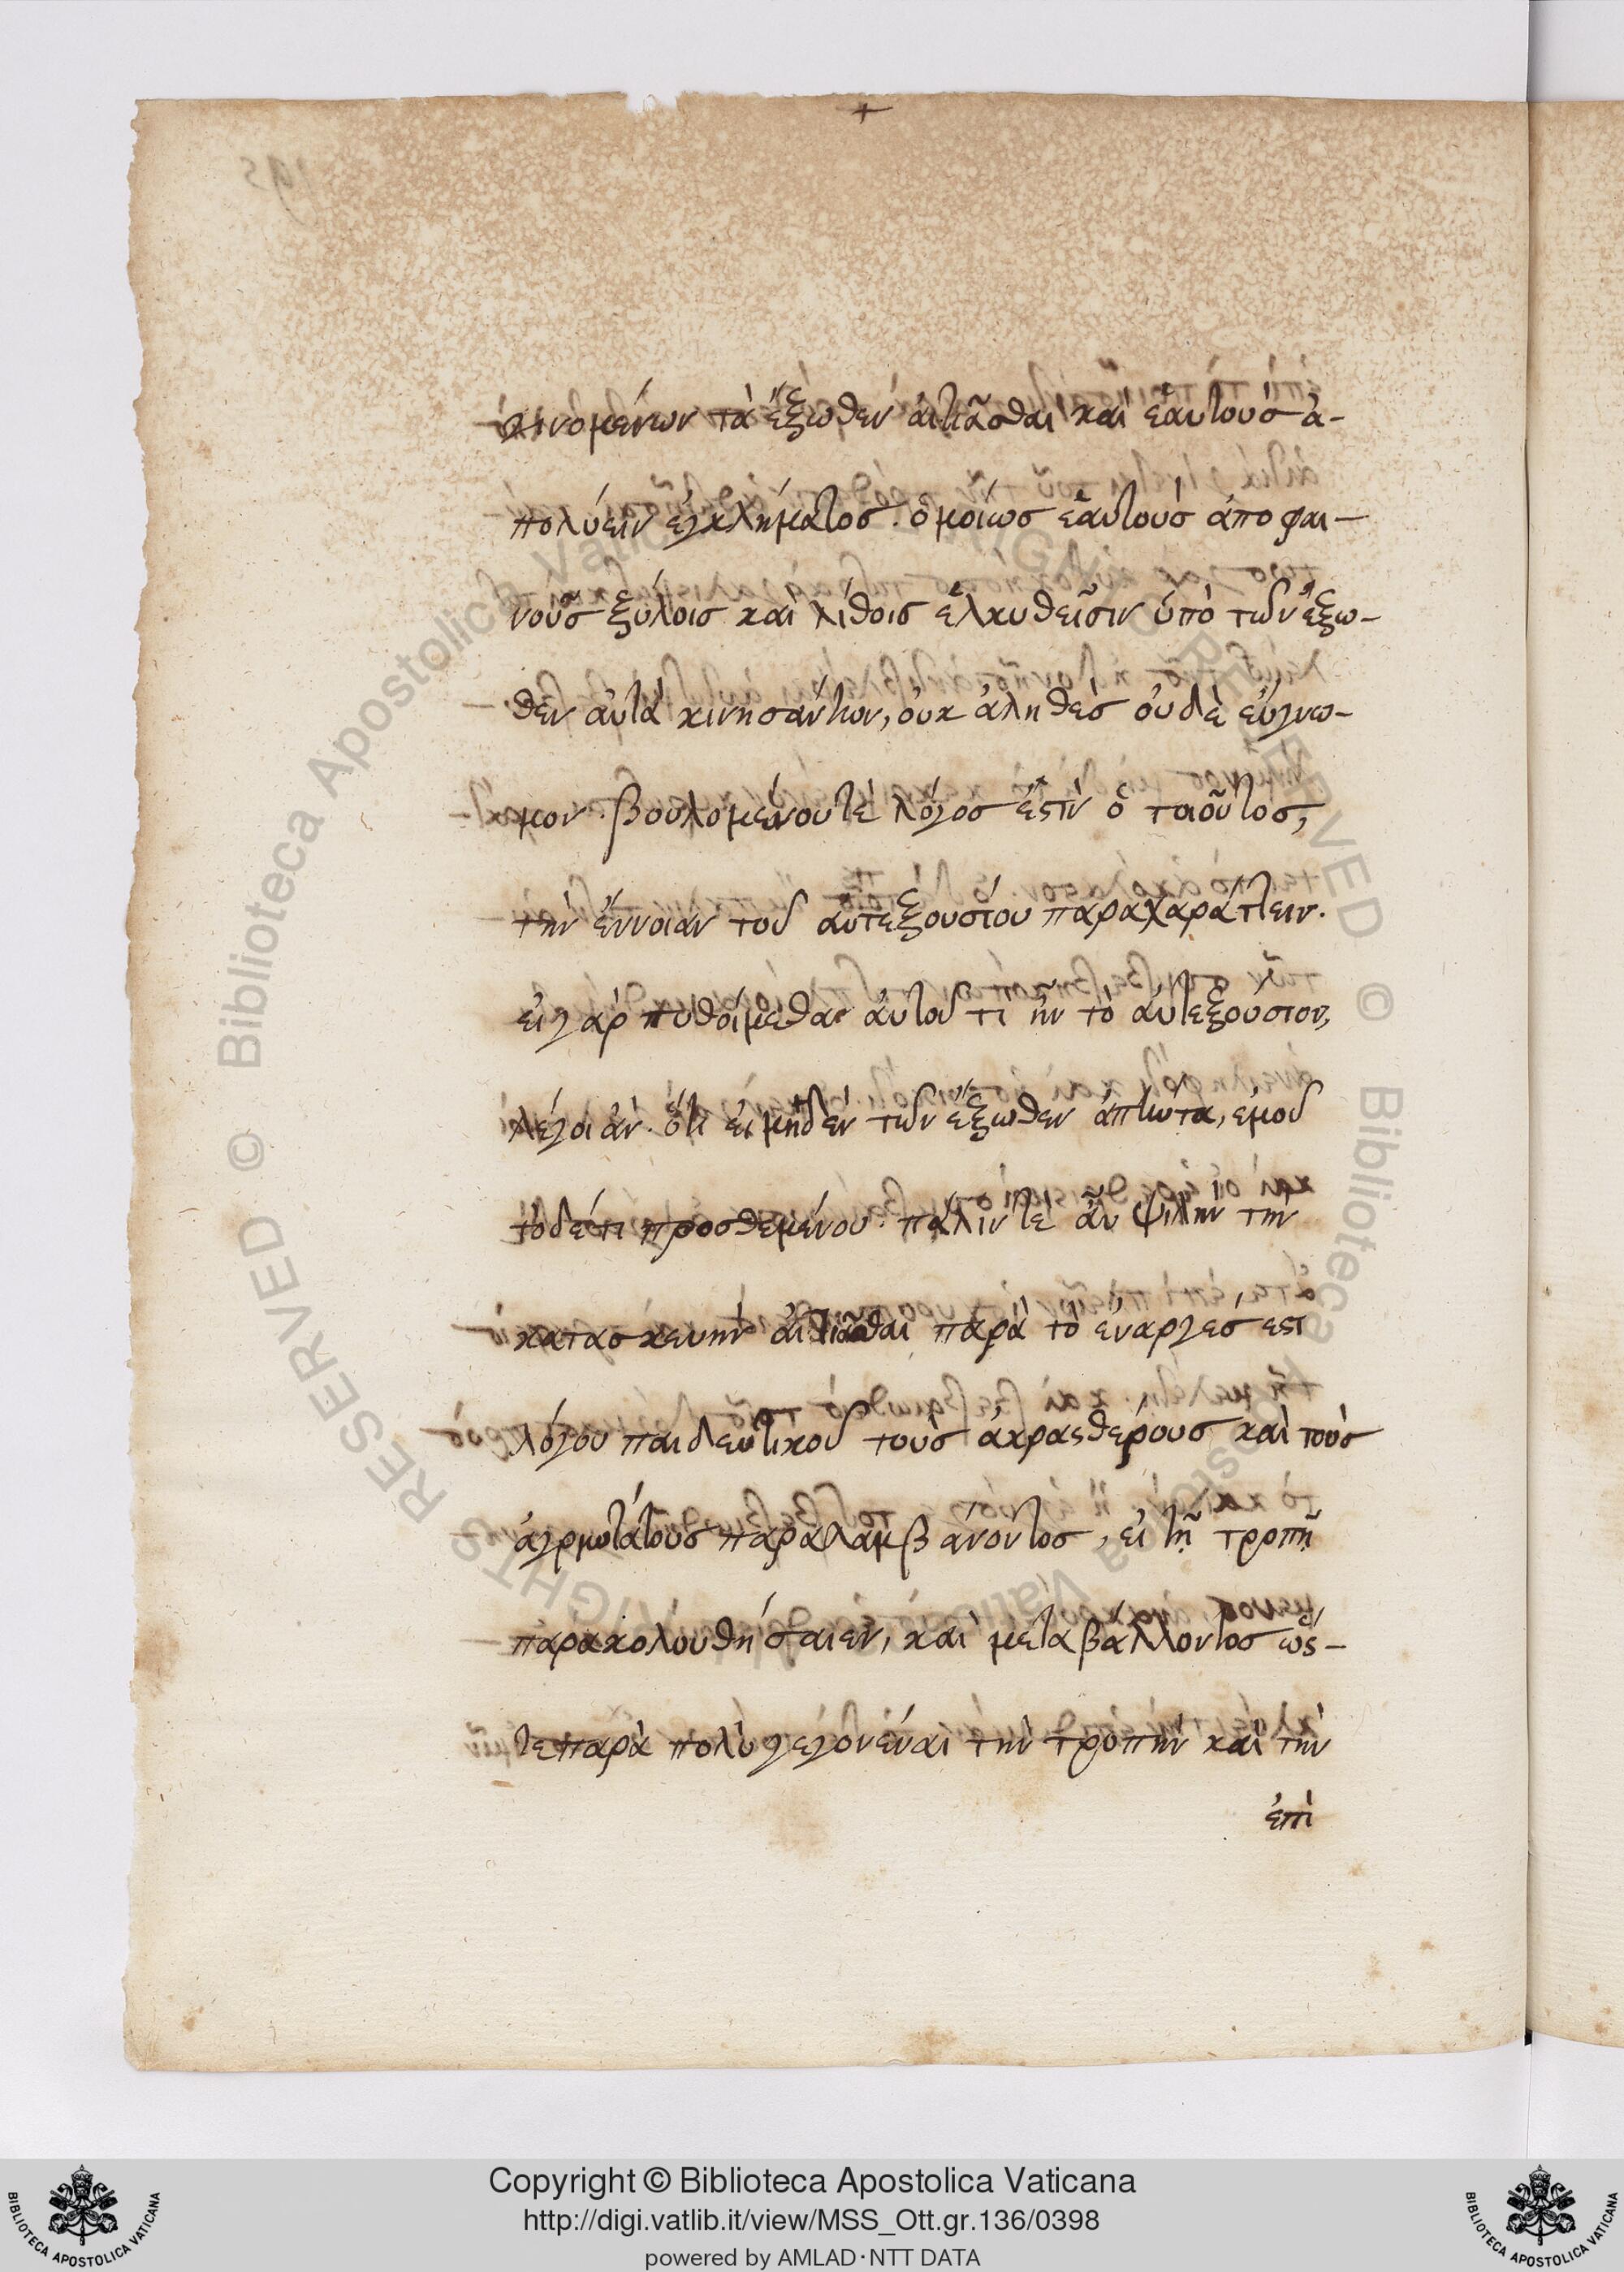 γινομένων τὰ ἔξωθεν αἰτιᾶσθαι καὶ ἑαυτοὺς ἀ-
πολύειν ἐγκλήματος. ὁμοίως ἑαυτοὺς ἀποφαι-
νοῦς ξύλοις καὶ λίθοις ἑλκυθεῖσιν ὑπὸ τῶν ἔξω-
θεν αὐτὰ κινησάντων, οὐκ ἀληθὲς οὐδὲ εὔγνω-
μον. βουλομένου τὲ λόγος ἐστὶν ὁ τοιοῦτος,
τὴν ἔννοιαν τοῦ αὐτεξουσίου παραχαράττειν.
εἰ γὰρ πυθοίμεθα αὐτοῦ τί ἦν τὸ αὐτεξούσιον,
λέγοι ἂν. ὅτι εἰ μηδὲν τῶν ἔξωθεν ἀπιώτα, ἐμοῦ
τὸ δέ τι προσθεμένου. πάλιν τὲ ἂν ψιλὴν τὴν
κατασκευὴν αἰτιᾶσθαι παρὰ τὸ ἐναργές ἐστ
λόγου παιδευτικοῦ τοὺς ἀκρασθέρους καὶ τοὺς
ἀγρμοτάτους παραλαμβάνοντος, εἰ τῇ τροπῇ
παρακολουθήσαιεν, καὶ μεταβάλλοντος ὥσ-
τε παρὰ πολὺ γεγονέναι τὴν τροπὴν καὶ τὴν
ἐπὶ
Copyright © Biblioteca Apostolica Vaticana
http://digi.vatlib.it/view/MSS_Ott.gr.136/0398
powered by AMLAD·NTT DATA